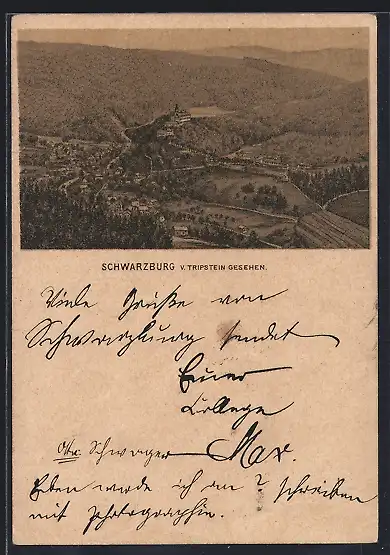 SCHWARZBURG V. TRIPSTEIN GESEHEN.
Viele Grüße von
Schwarzburg sendet
Euer
College
Schwager Max.
Eben wurde ich am 2 schreiben
mit photographir.